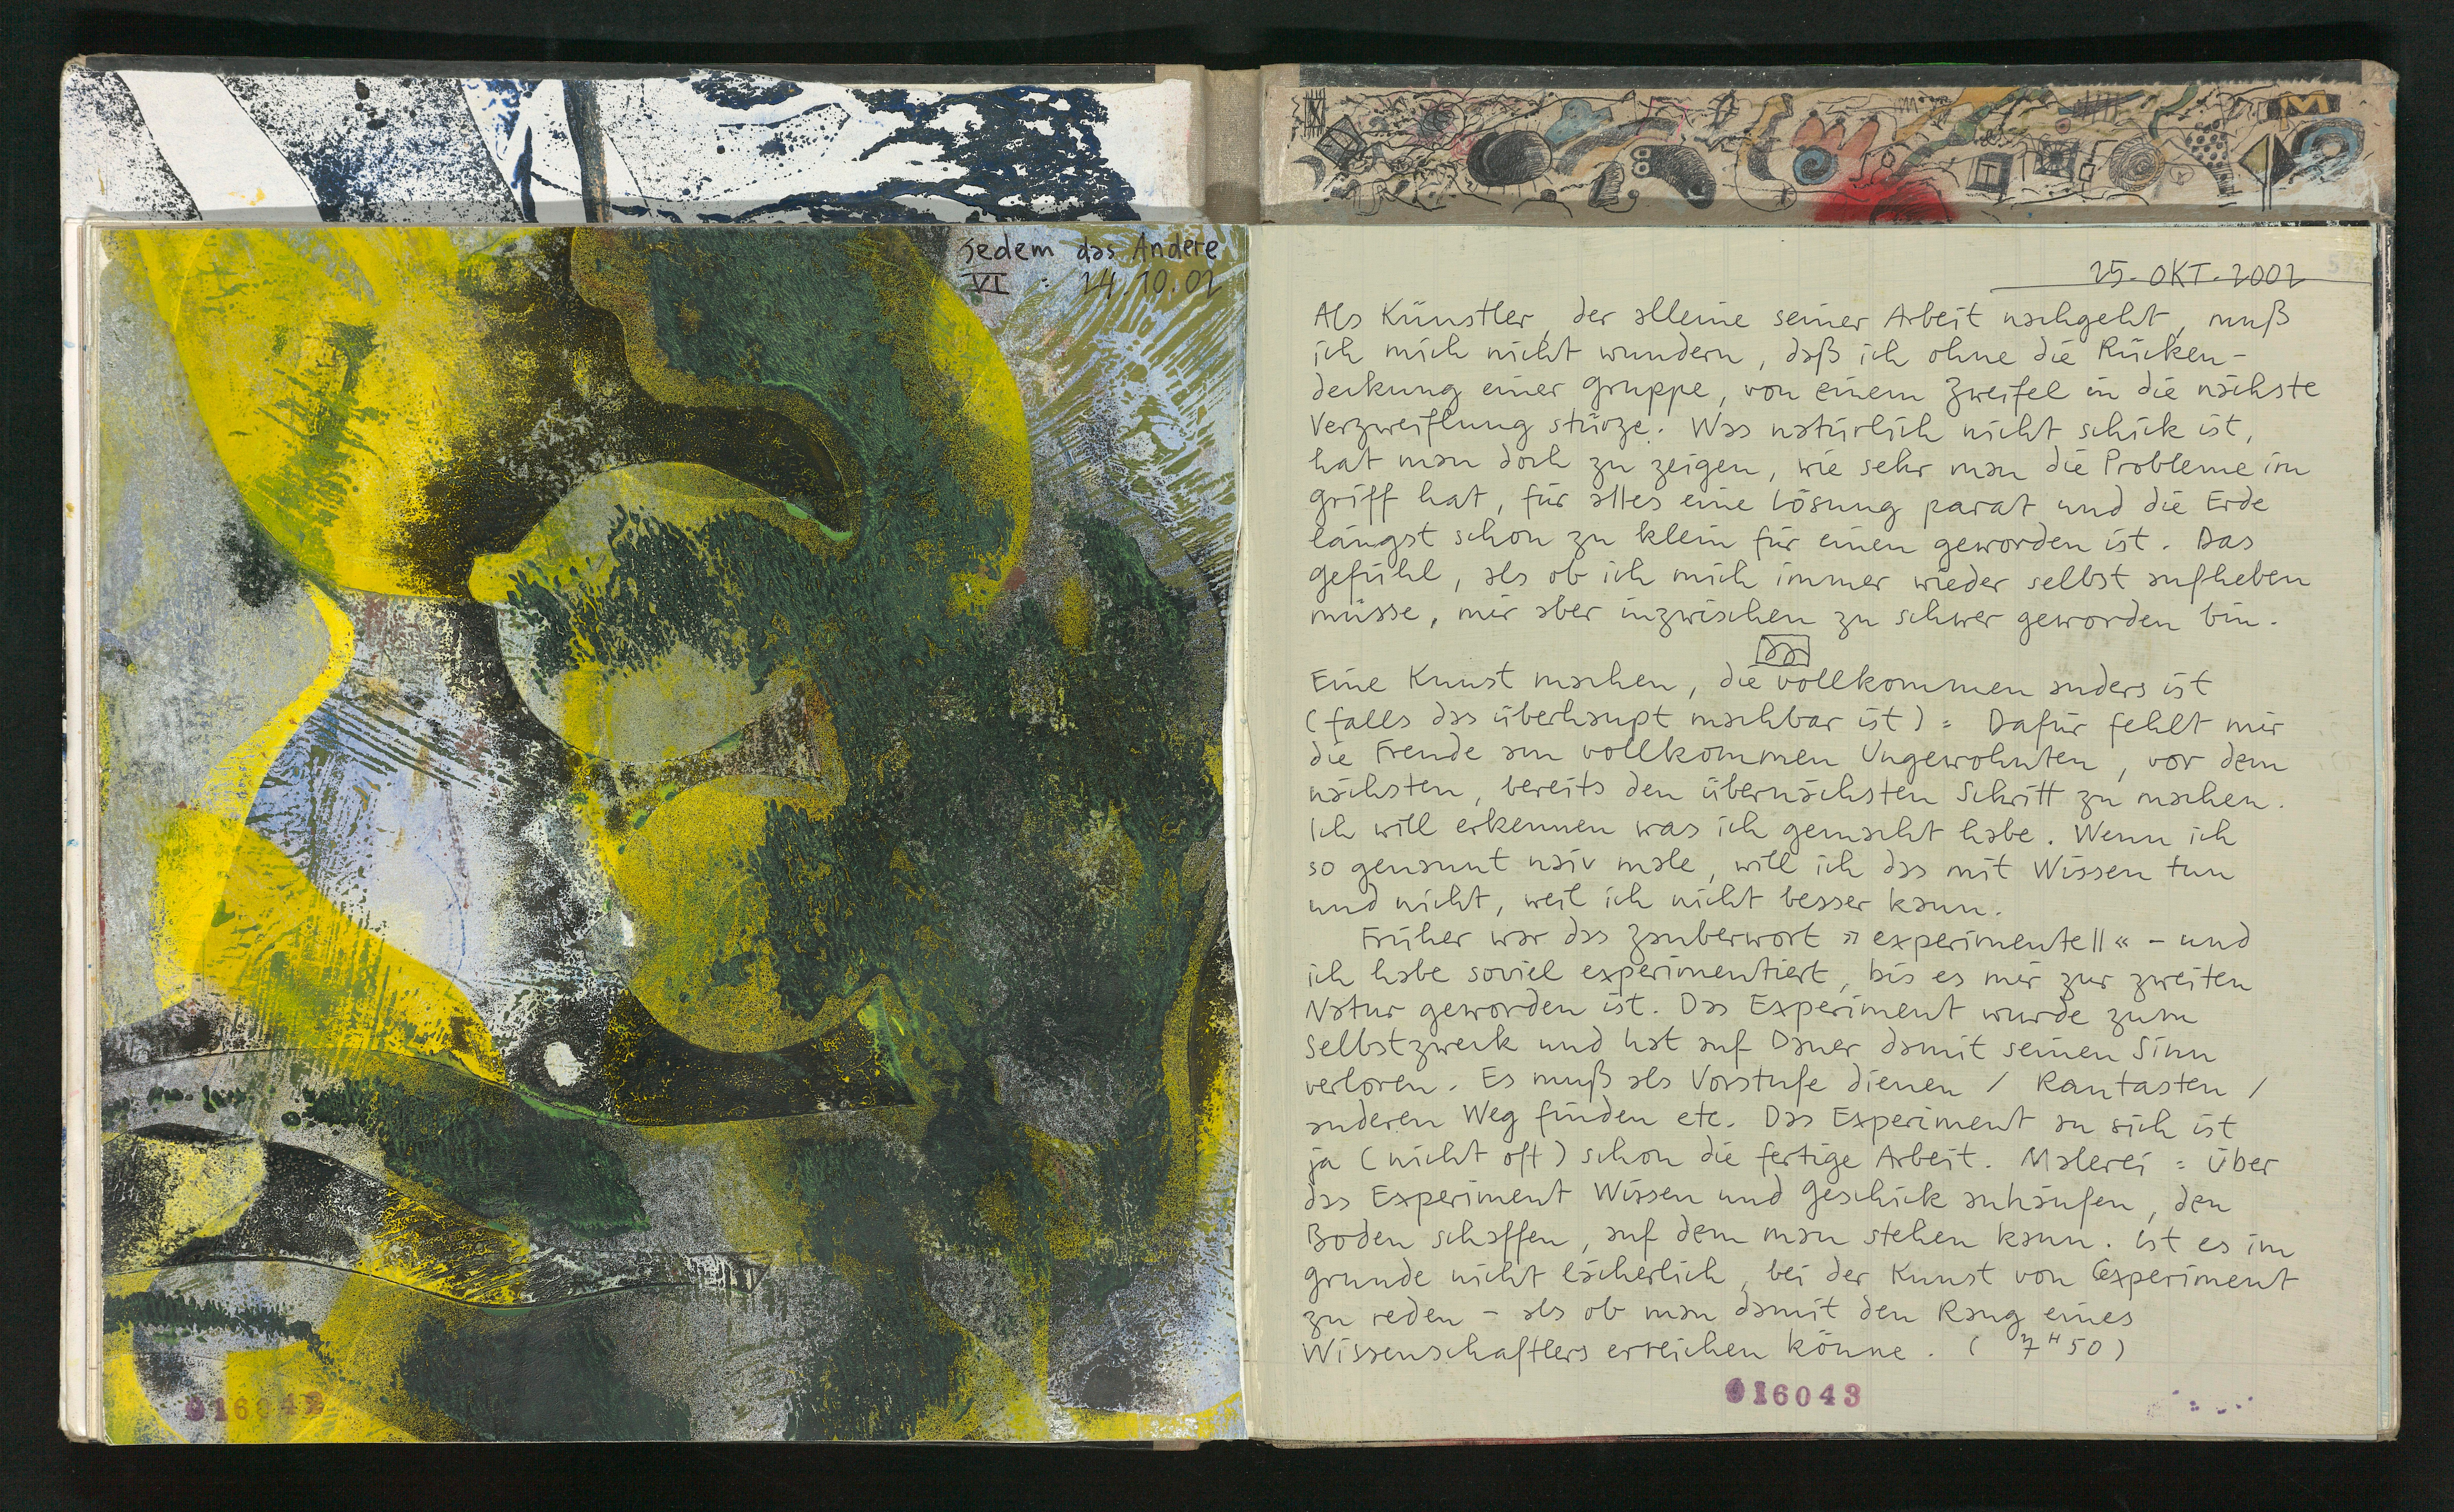 Jedem das Andere
VI : 24.10.02
016042
25. OKT. 2002
Als Künstler, der alleine seiner Arbeit nachgeht, muß
ich mich nicht wundern, daß ich ohne die Rücken-
deckung einer Gruppe, von einem Zweifel in die nächste
Verzweiflung stürze. Was natürlich nicht schick ist,
hat man doch zu zeigen, wie sehr man die Probleme im
Griff hat, für alles eine Lösung parat und die Erde
längst schon zu klein für einen geworden ist. Das
Gefühl, als ob ich mich immer wieder selbst aufheben
müsse, mir aber inzwischen zu schwer geworden bin.
Eine Kunst machen, die vollkommen anders ist
(falls das überhaupt machbar ist) : Dafür fehlt mir
die Freude am vollkommen Ungewohnten, vor dem
nächsten, bereits den übernächsten Schritt zu machen.
Ich will erkennen was ich gemacht habe. Wenn ich
so genannt naiv male, will ich das mit Wissen tun
und nicht, weil ich nicht besser kann.
Früher war das Zauberwort »experimentell« – und
ich habe soviel experimentiert, bis es mir zur zweiten
Natur geworden ist. Das Experiment wurde zum
Selbstzweck und hat auf Dauer damit seinen Sinn
verloren. Es muß als Vorstufe dienen / Rantasten /
anderen Weg finden etc. Das Experiment an sich ist
ja (nicht oft) schon die fertige Arbeit. Malerei : Über
das Experiment Wissen und Geschick anhäufen, den
Boden schaffen, auf dem man stehen kann. Ist es im
Grunde nicht lächerlich, bei der Kunst von Experiment
zu reden – als ob man damit den Rang eines
Wissenschaftlers erreichen könne. ( 7 H 50 )
016043